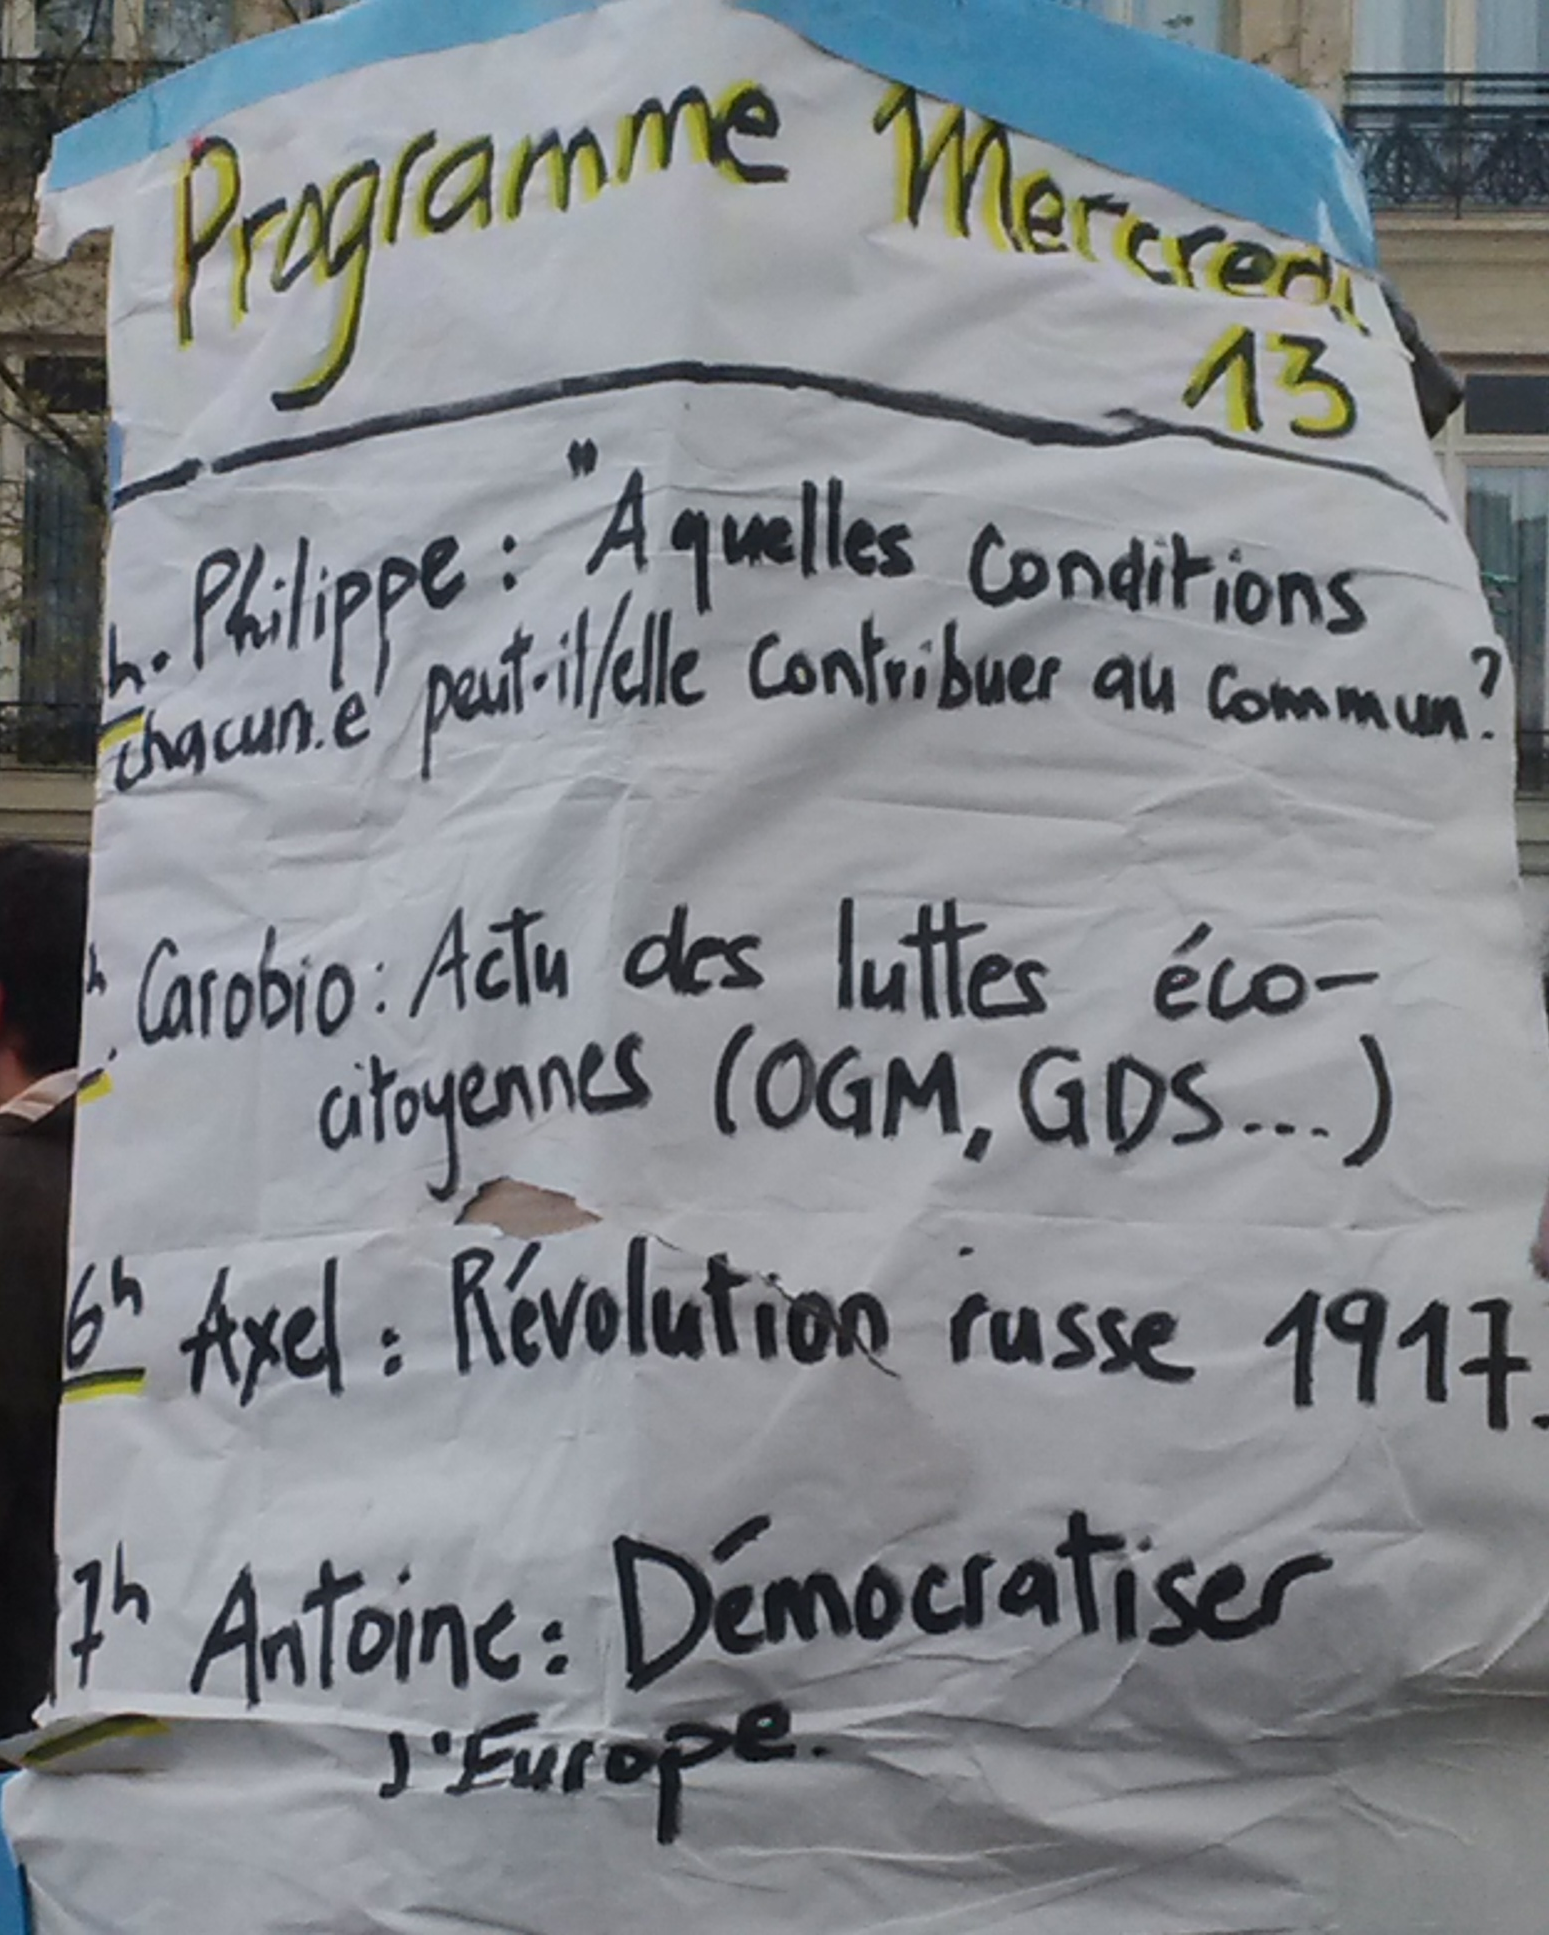 Programme Mercredi
13
h. Philippe : "A quelles conditions
chacun.e peut-il/elle contribuer au commun?
h Carobio : Actu des luttes éco-
citoyennes (OGM, GDS....)
6h Axel : Révolution russe 1917.
7h Antoine : Démocratiser
l'Europe.